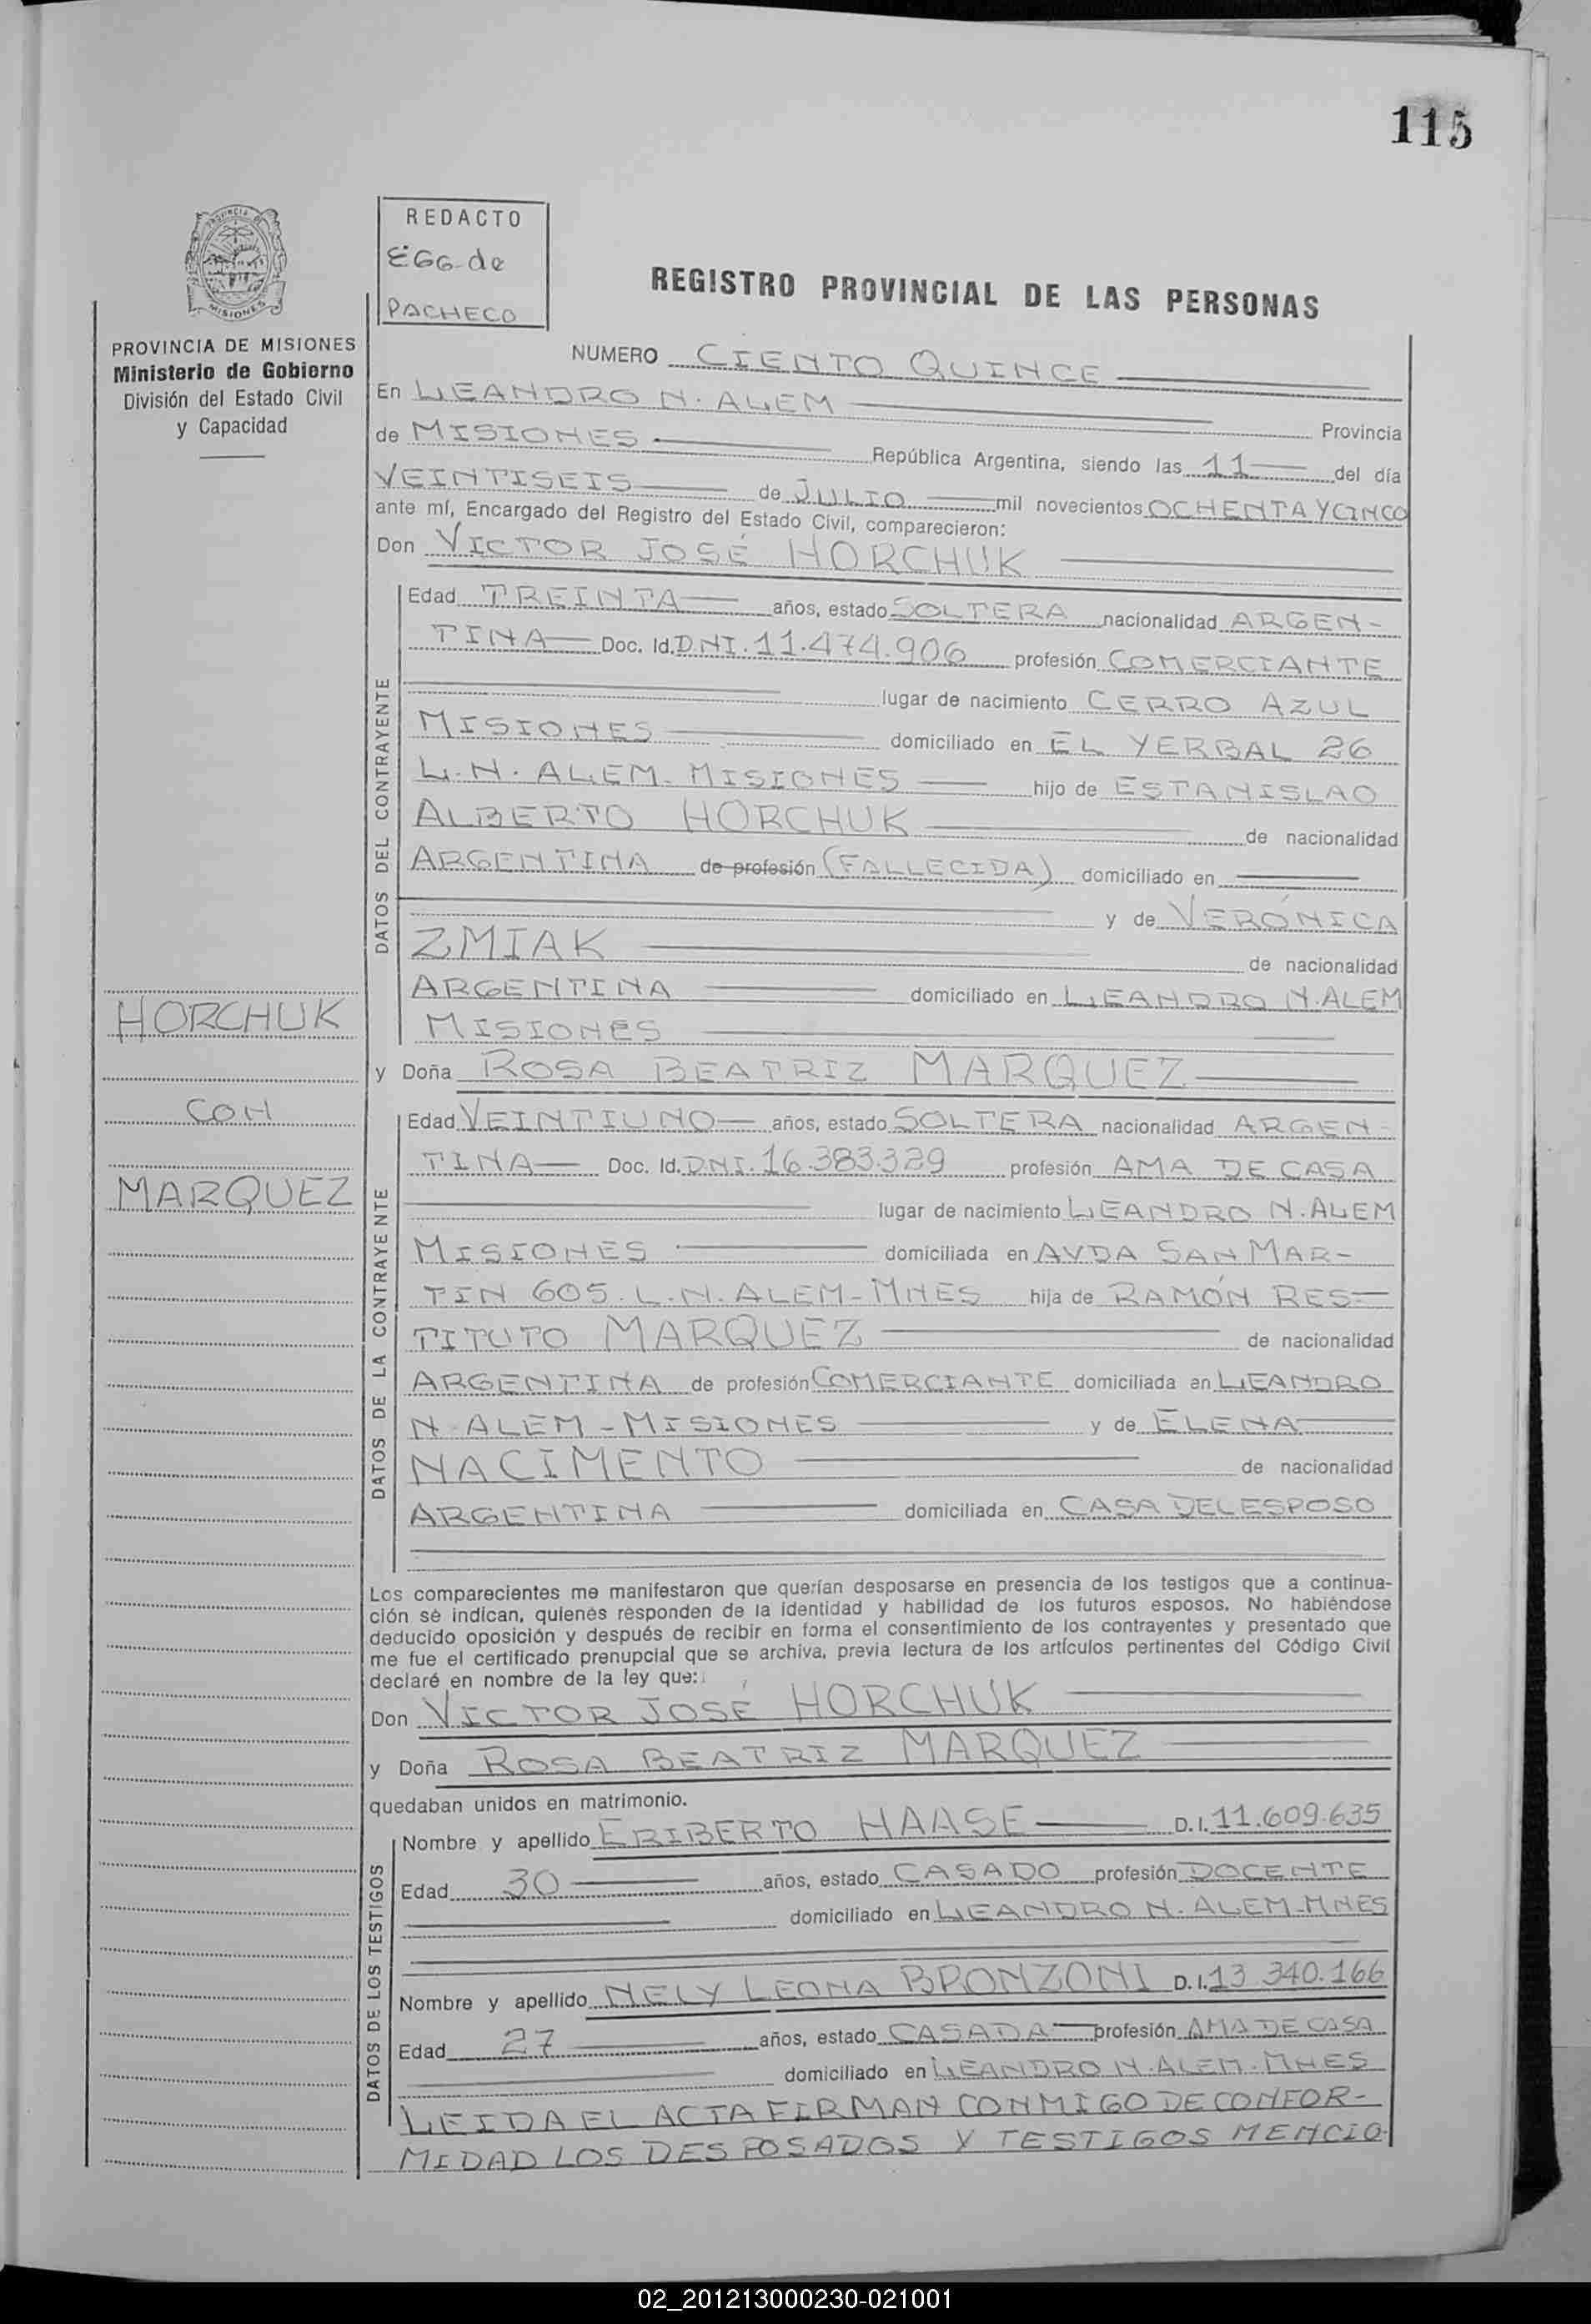 115
REDACTO
EGG de
PACHECO
PROVINCIA DE MISIONES
MISIONES
REGISTRO PROVINCIAL DE LAS PERSONAS
PROVINCIA DE MISIONES
Ministerio de Gobierno
División del Estado Civil
y Capacidad
NUMERO CIENTO QUINCE
En LEANDRO N. ALEM Provincia
de MISIONES República Argentina, siendo las 11 del día
VEINTISEIS de JULIO mil novecientos OCHENTA Y CINCO
ante mí, Encargado del Registro del Estado Civil, comparecieron:
Don VICTOR JOSÉ HORCHUK
DATOS DEL CONTRAYENTE
Edad TREINTA años, estado SOLTERA nacionalidad ARGEN-
TINA Doc. Id. DNI. 11.474.906 profesión COMERCIANTE
lugar de nacimiento CERRO AZUL
MISIONES domiciliado en EL YERBAL 26
L.N. ALEM-MISIONES hijo de ESTANISLAO
ALBERTO HORCHUK de nacionalidad
ARGENTINA de profesión (FALLECIDA) domiciliado en
y de VERÓNICA
ZMIAK de nacionalidad
ARGENTINA domiciliado en LEANDRO N. ALEM
MISIONES
HORCHUK
CON
MARQUEZ
y Doña ROSA BEATRIZ MARQUEZ
DATOS DE LA CONTRAYENTE
Edad VEINTIUNO años, estado SOLTERA nacionalidad ARGEN-
TINA Doc. Id. DNI. 16.383.329 profesión AMA DE CASA
lugar de nacimiento LEANDRO N. ALEM
MISIONES domiciliada en AVDA SAN MAR-
TIN 605. L.N. ALEM-MNES hija de RAMÓN RES-
TITUTO MARQUEZ de nacionalidad
ARGENTINA de profesión COMERCIANTE domiciliada en LEANDRO
N. ALEM-MISIONES y de ELENA
NACIMENTO de nacionalidad
ARGENTINA domiciliada en CASA DEL ESPOSO
Los comparecientes me manifestaron que querían desposarse en presencia de los testigos que a continua-
ción se indican, quienes responden de la identidad y habilidad de los futuros esposos. No habiéndose
deducido oposición y después de recibir en forma el consentimiento de los contrayentes y presentado que
me fue el certificado prenupcial que se archiva, previa lectura de los artículos pertinentes del Código Civil
declaré en nombre de la ley que:
Don VICTOR JOSÉ HORCHUK
y Doña ROSA BEATRIZ MARQUEZ
quedaban unidos en matrimonio.
DATOS DE LOS TESTIGOS
Nombre y apellido ERIBERTO HAASE D.I. 11.609.635
Edad 30 años, estado CASADO profesión DOCENTE
domiciliado en LEANDRO N. ALEM-MNES
Nombre y apellido NELY LEONA BRONZONI D.I. 13.340.166
Edad 27 años, estado CASADA profesión AMA DE CASA
domiciliado en LEANDRO N. ALEM-MNES
LEIDA EL ACTA FIRMAN CONMIGO DE CONFOR-
MIDAD LOS DESPOSADOS Y TESTIGOS MENCIO-
02_201213000230-021001